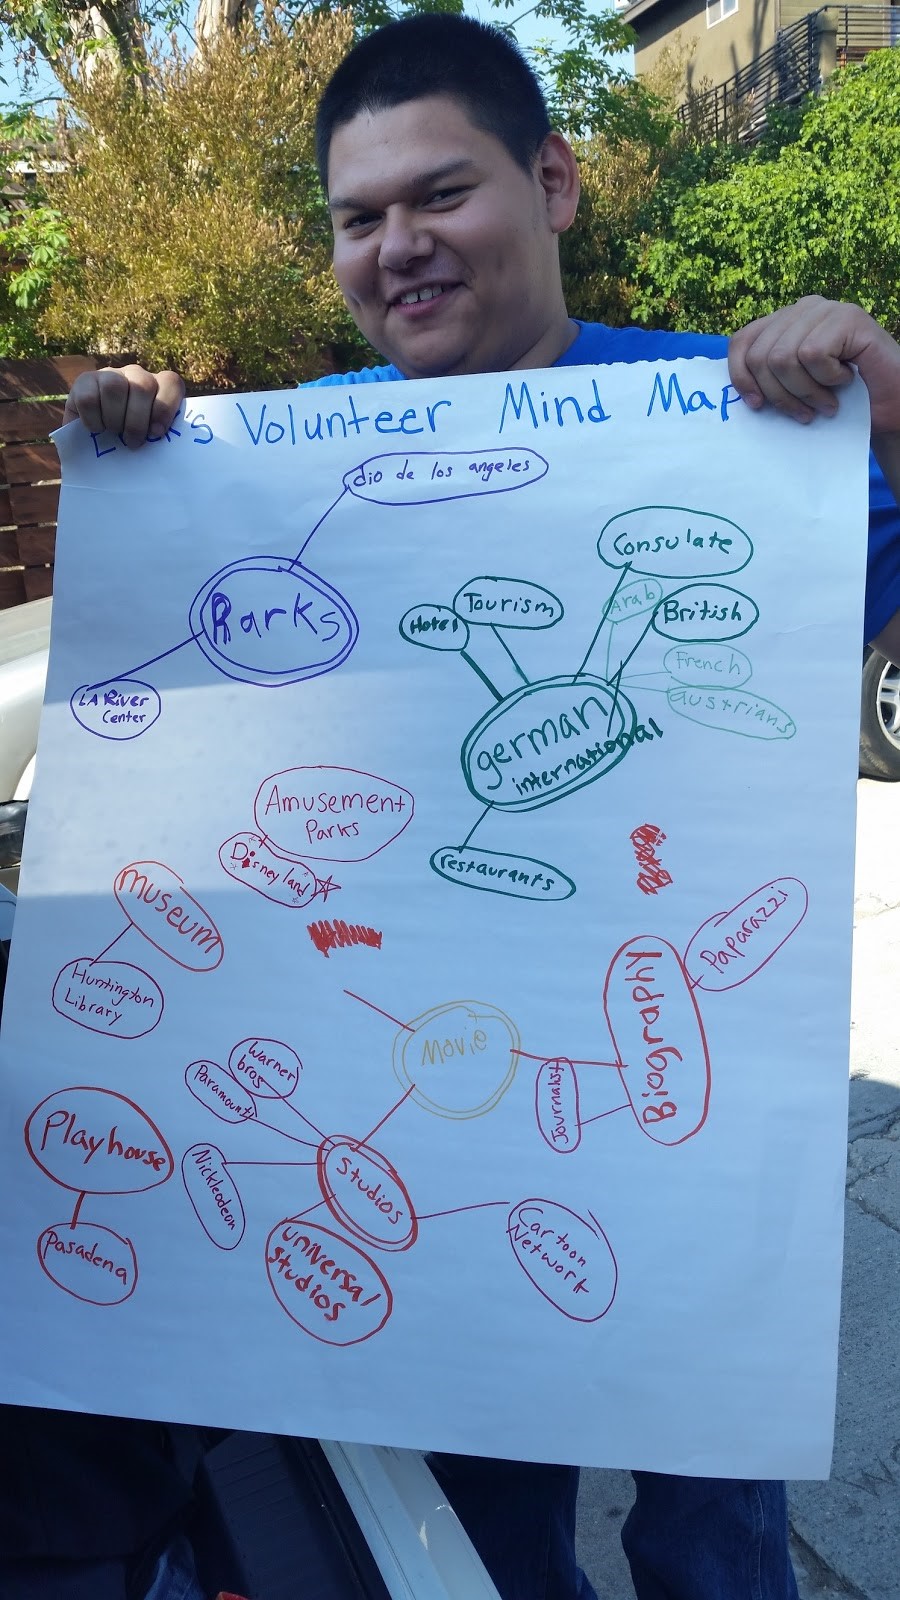 Erick's Volunteer Mind Map
dio de los angeles
Parks
LA River
Center
Consulate
Tourism
Hotel
Arab
British
French
austrians
german
international
restaurants
Amusement
Parks
Disneyland
museum
Huntington
Library
Paparazzi
Biography
Journalist
Movie
Warner
bros
Paramount
Playhouse
Nickleodeon
Studios
Pasadena
universal
studios
Cartoon
Network